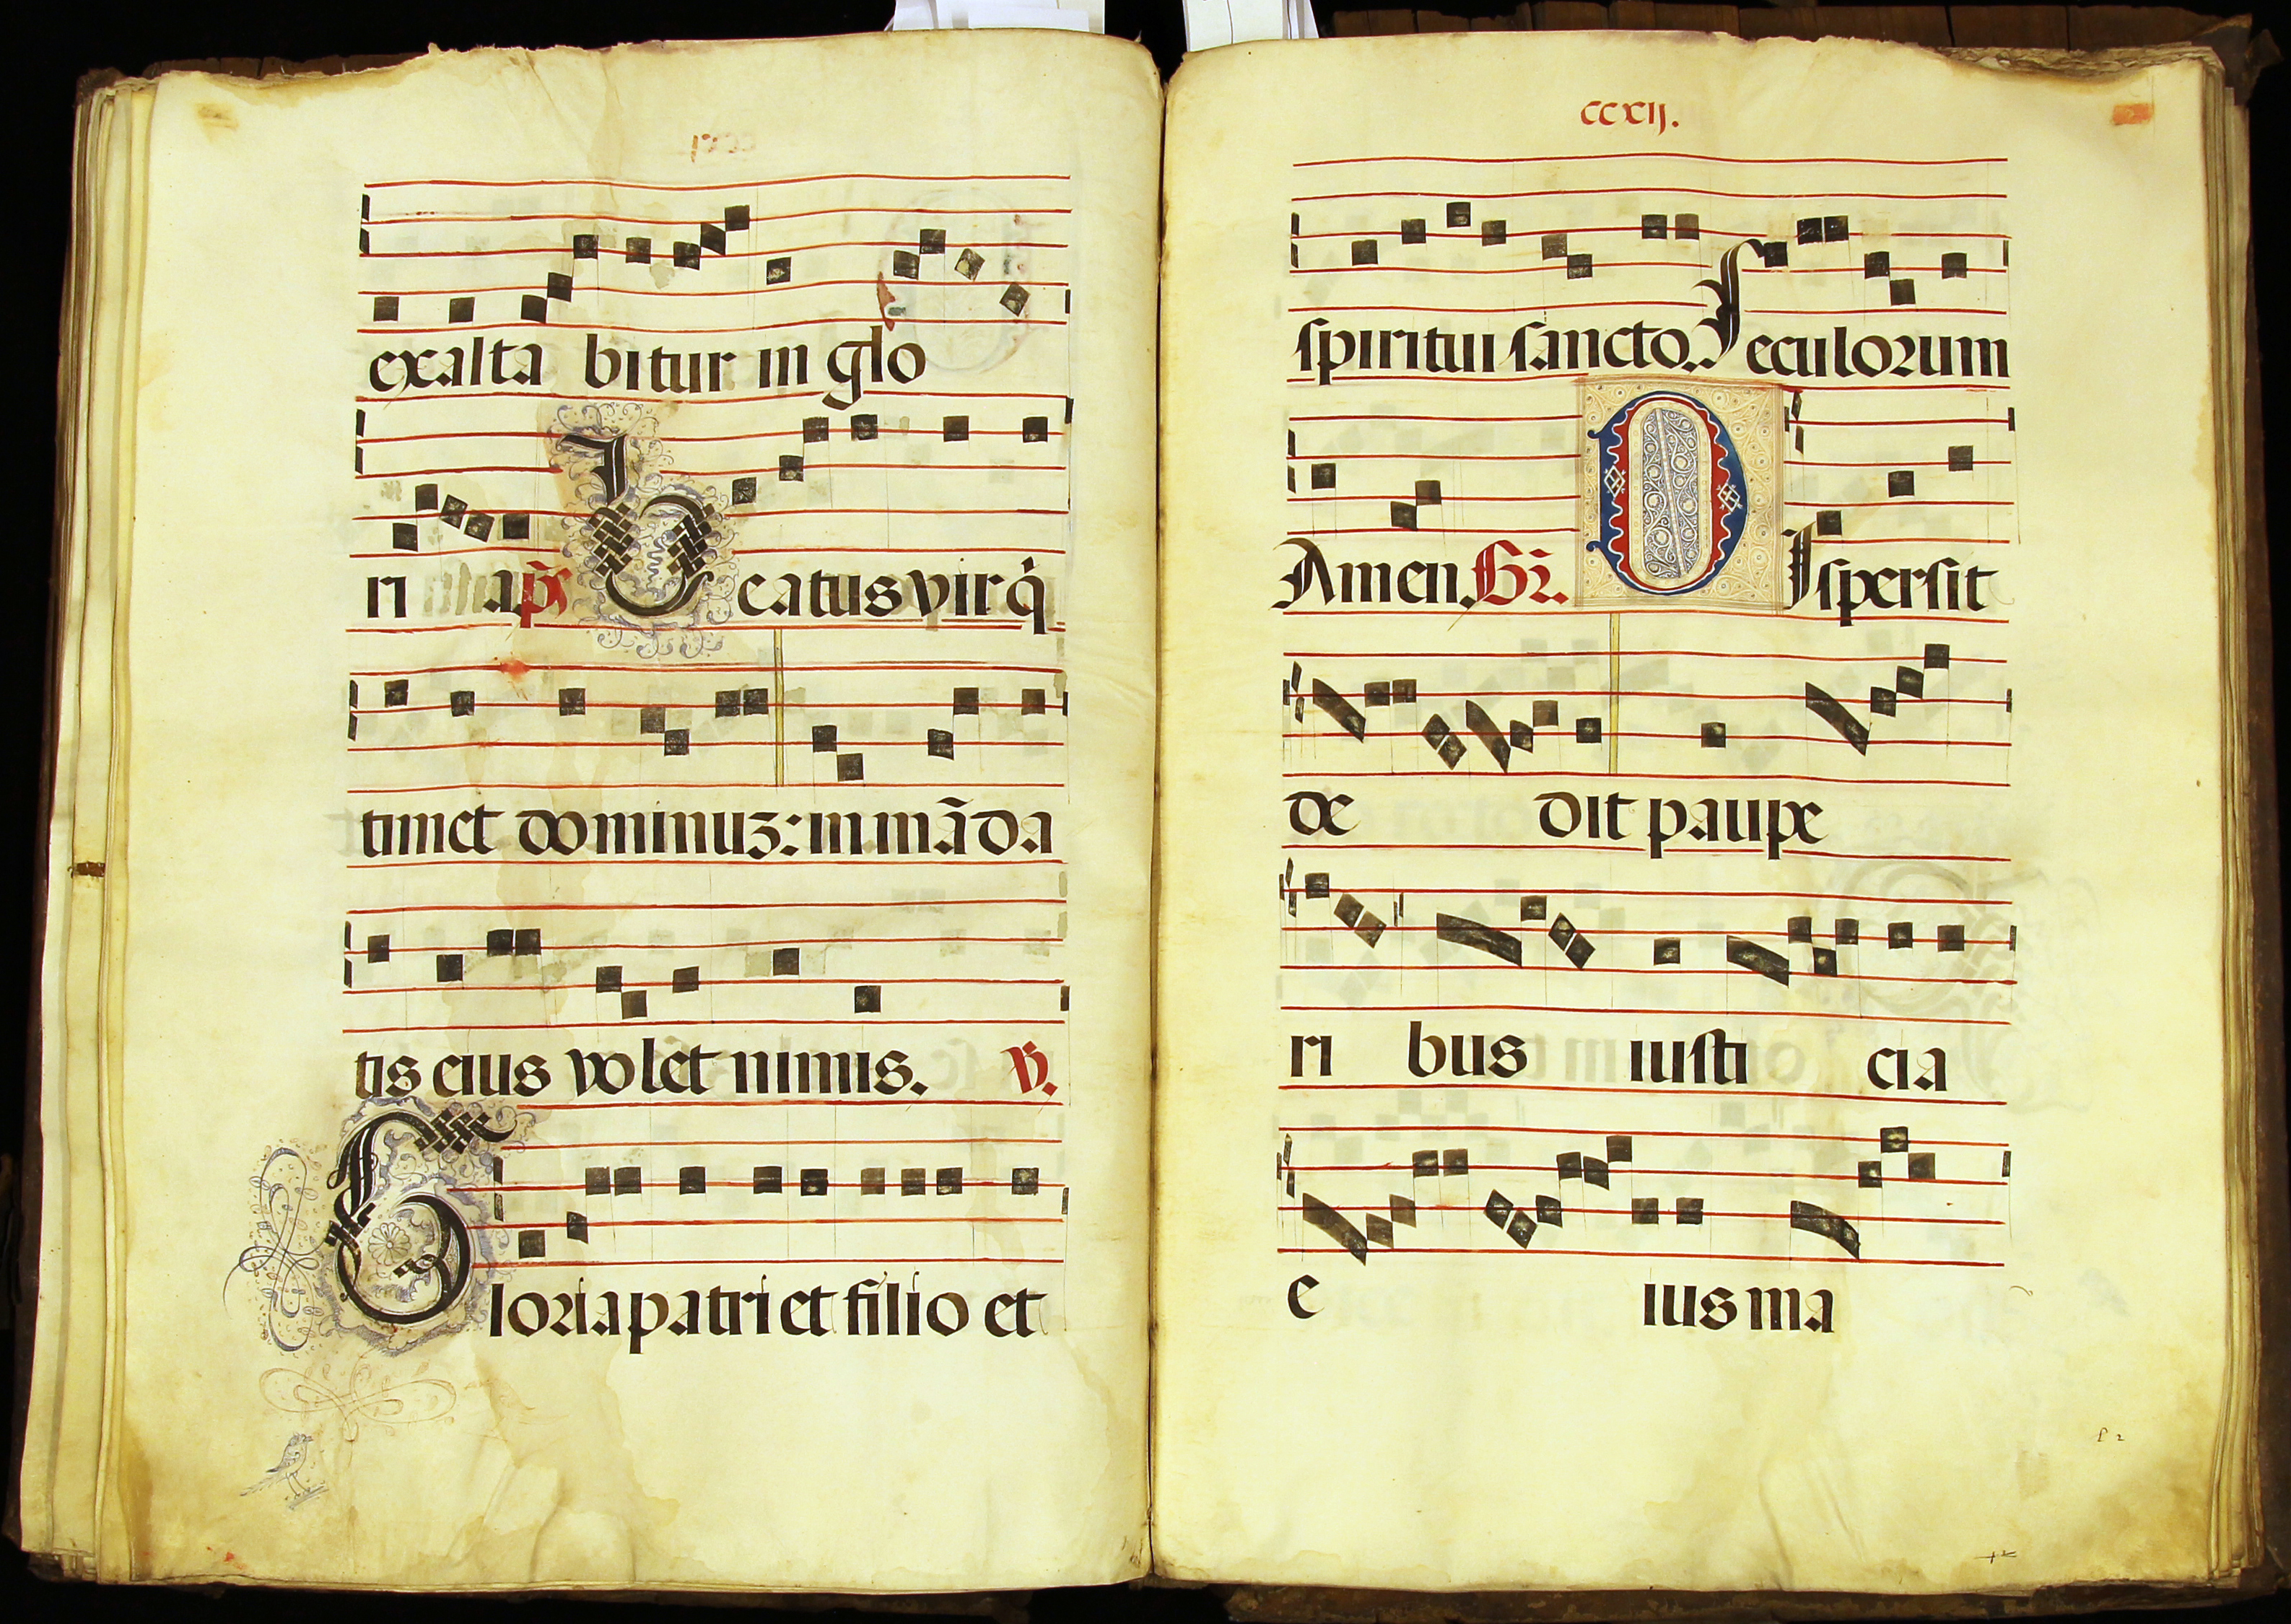 exalta bitur in glo
ri a. ps Beatus vir q̇
timet dominuz: in mãda
tis eius volet nimis. V.
Gloria patri et filio et
ccxij.
spiritui sancto. Seculorum
Amen. Gr̃. DIspersit
de dit paupe
ri bus iusti cia
e ius ma